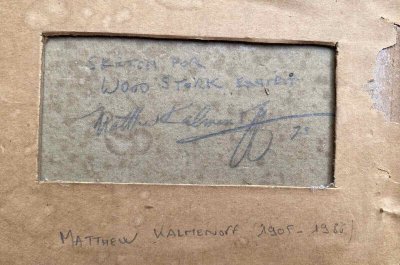 SKETCH FOR
WOOD STORK EXHIBIT
Matthew Kalmenoff
MATTHEW KALMENOFF (1905-1986)